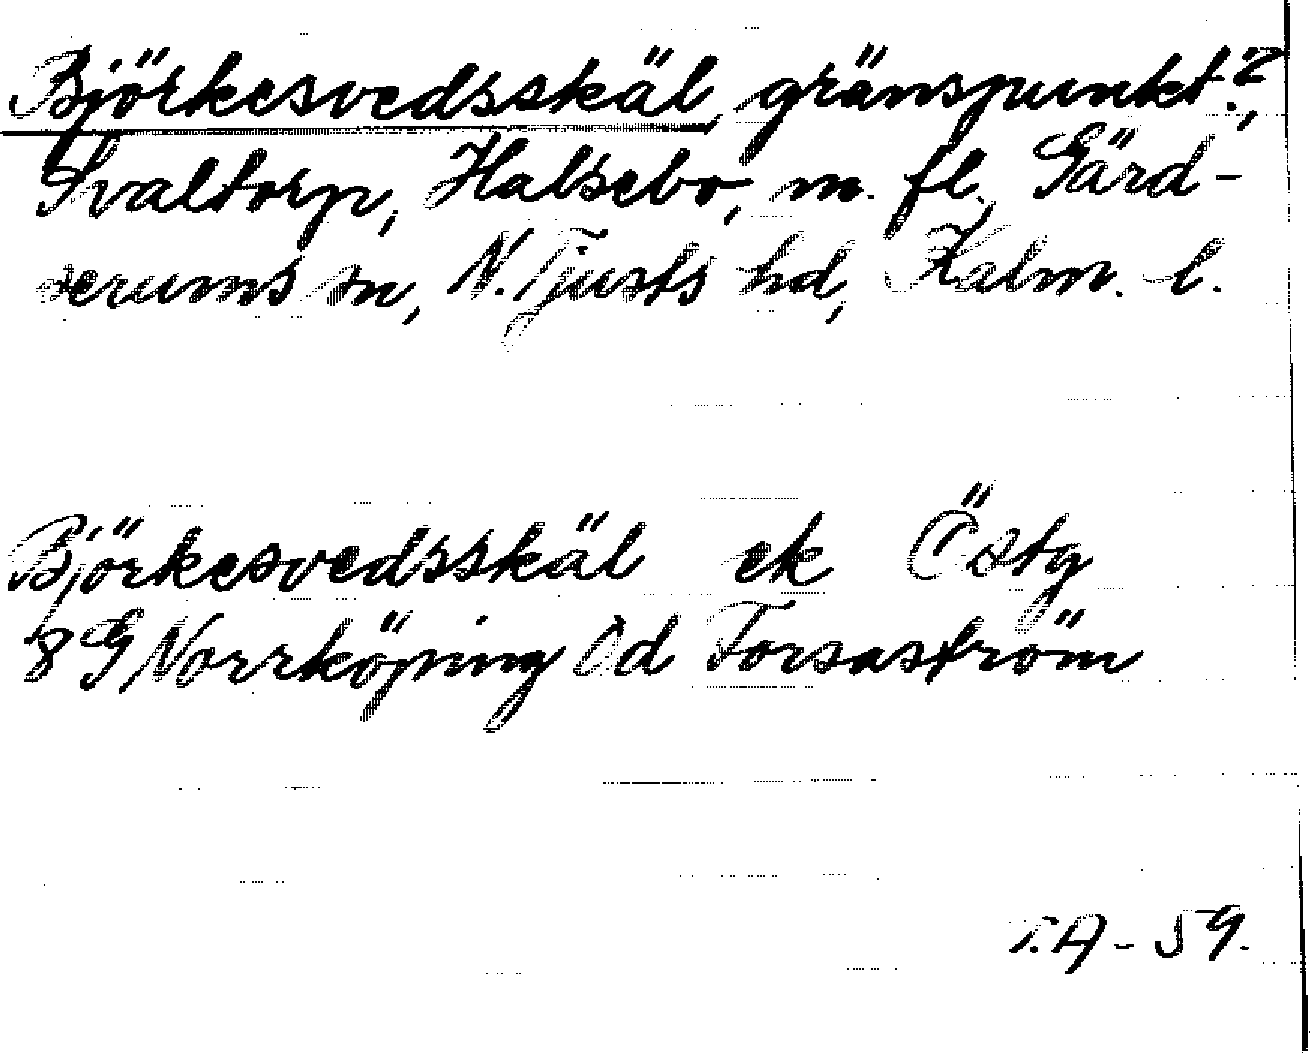 Björkesvedsskäl, gränspunkt?,
Svaltorp, Halsebo, m. fl., Gärd-
serums sn, N. Tjusts hd, Kalm. l.
Björkesvedsskäl ek Östg
8G Norrköping Od Forsaström
T.A - 59.